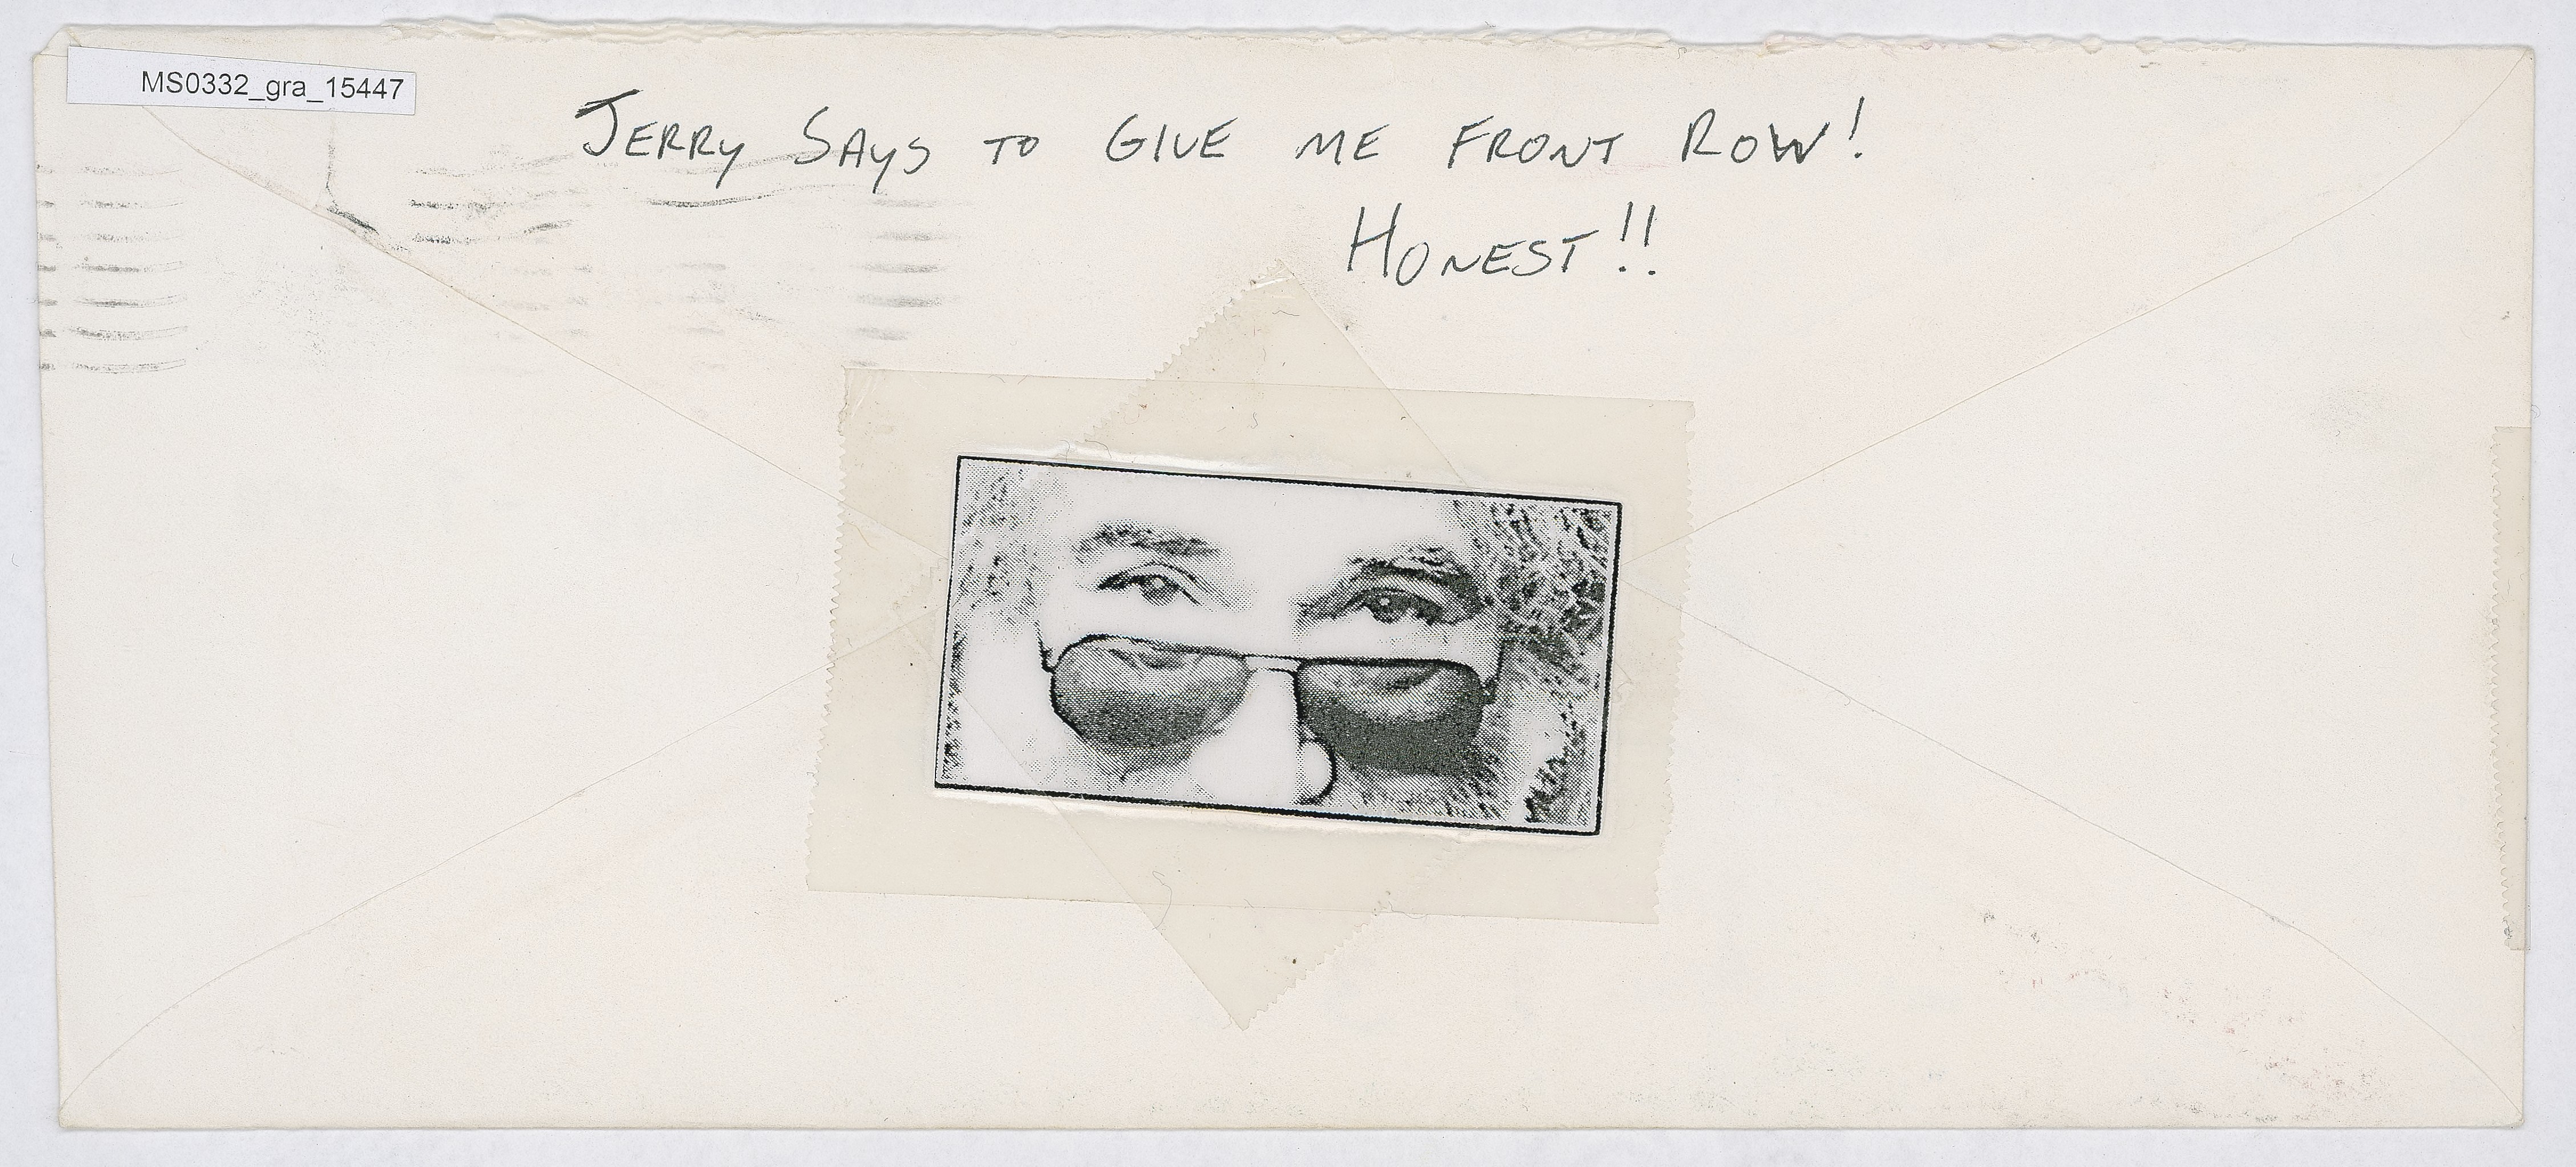 MS0332_gra_15447
JERRY SAYS TO GIVE ME FRONT ROW!
HONEST!!